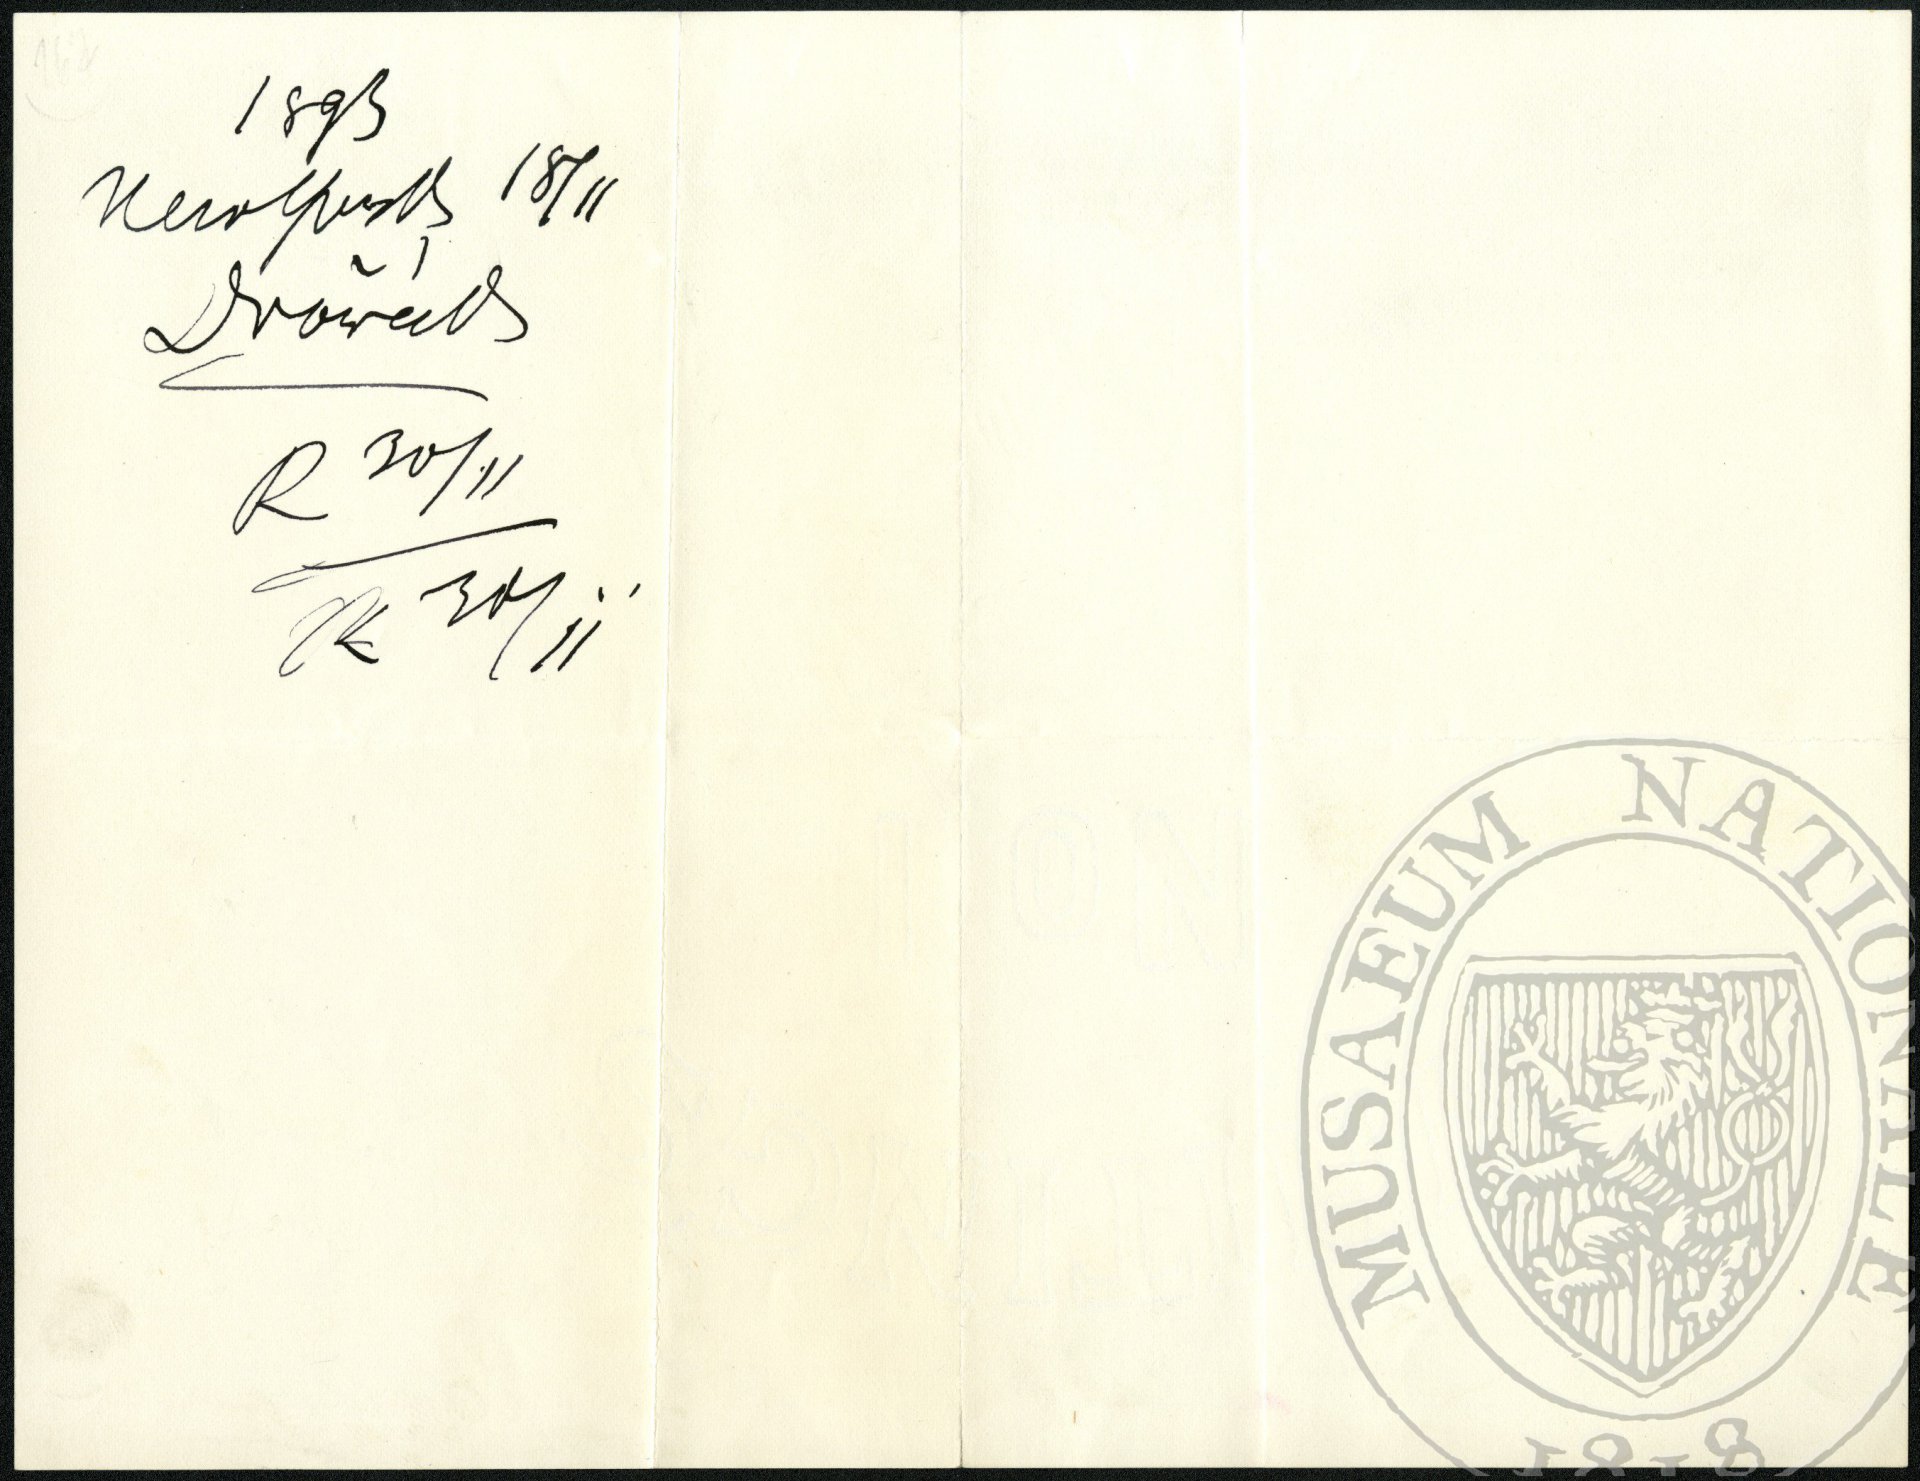 1893
NewYork 18/11
Dvořák
R 30/11
30/11
MUSAEUM NATIONALE
1818